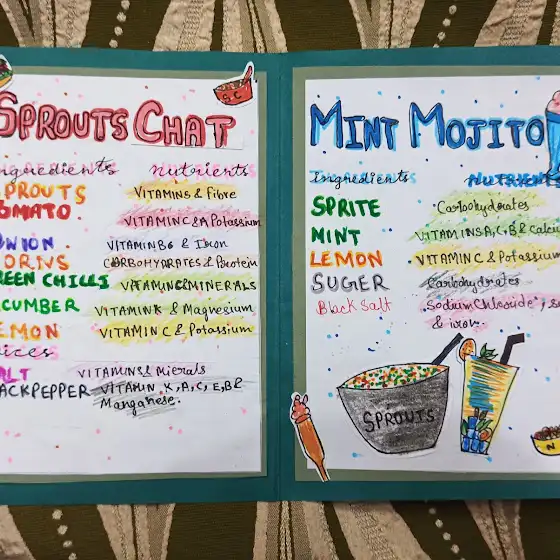 SPROUTS CHAT
S C
ngredients nutrients
PROUTS VITAMINS & Fibre
OMATO. VITAMIN C & A Potassium
NION VITAMIN B6 & Iron
ORNS CARBOHYDRATES & Protein
REEN CHILLI VITAMINS & MINERALS
CUMBER VITAMIN K & Magnesium
EMON VITAMIN C & Potassium
ices
ALT VITAMINS & Mierals
ACKPEPPER VITAMIN, K, A, C, E, B &
Manganese.
MINT MOJITO
Ingredients NUTRIENT
SPRITE Carbohydrates
MINT VITAMINS A, C, B & Calciu
LEMON VITAMIN C & Potassium
SUGER Carbohydrates
Black Salt Sodium Chloride, s
& iron.
SPROUTS
N